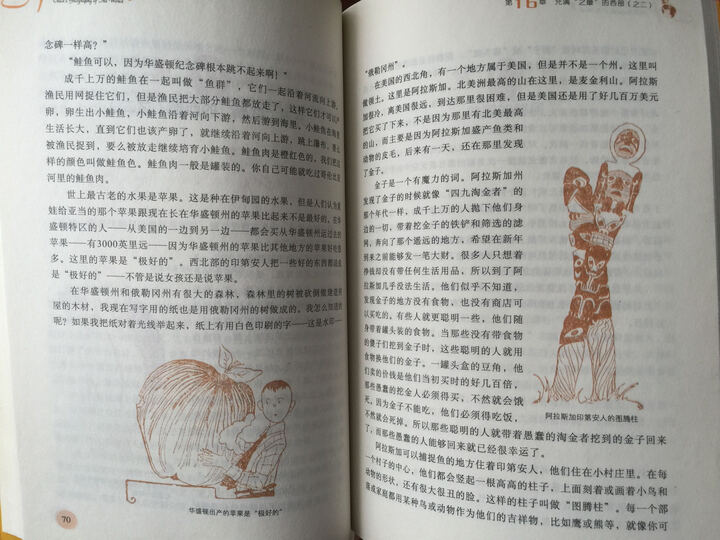 念碑一样高？”
“鲑鱼可以，因为华盛顿纪念碑根本跳不起来啊！”
成千上万的鲑鱼在一起叫做“鱼群”，它们一起沿着河流向上游。
渔民用网捉住它们，但是渔民把大部分鲑鱼都放走了，这样它们才可以产
卵，卵生出小鲑鱼，小鲑鱼沿着河向下游，然后游到海里。小鲑鱼在海里
生活长大，直到它们也该产卵了，就继续沿着河向上游，跳上瀑布，要么
被渔民捉到，要么被放走继续培育小鲑鱼。鲑鱼肉是橙红色的，我们把这
样的颜色叫做鲑鱼色。鲑鱼肉一般是罐装的。你自己可能就吃过哥伦比亚
河里的鲑鱼肉。
世上最古老的水果是苹果。这是种在伊甸园的水果，但是人们认为夏
娃给亚当的那个苹果跟现在长在华盛顿州的苹果比起来不是最好的。在华
盛顿特区的人——从美国的一边到另一边——都会买从华盛顿州运过去的
苹果——有3000英里远——因为华盛顿州的苹果比其他地方的苹果好吃得
多。这里的苹果是“极好的”。西北部的印第安人把一些好的东西都说成
是“极好的”——不管是说女孩还是说苹果。
在华盛顿州和俄勒冈州有很大的森林，森林里的树被砍倒做建造房
屋的木材，我现在写字用的纸也是用俄勒冈州的树做成的。我怎么知道的
呢？如果我把纸对着光线举起来，纸上有用白色印刷的字——这是水印——
华盛顿出产的苹果是“极好的”
70
第16章 充满“之最”的西部（之二）
“俄勒冈州”。
在美国的西北角，有一个地方属于美国，但是并不是一个州。这里叫
做领土。这里是阿拉斯加。北美洲最高的山在这里，是麦金利山。阿拉斯
加很冷，离美国很远，到达那里很困难，但是美国还是用了好几百万美元
把它买了下来，不是因为那里有北美最高
的山，而主要是因为阿拉斯加盛产鱼类和
动物的皮毛，后来有一天，还在那里发现
了金子。
金子是一个有魔力的词。阿拉斯加州
发现了金子的时候就像“四九淘金者”的
那个年代一样，成千上万的人抛下他们身
边的一切，带着挖金子的铁铲和筛选的滤
网，奔向了那个遥远的地方，希望在新年
到来之前能够发一笔大财。很多人只想着
挣钱却没有带任何生活用品，所以到了阿
拉斯加几乎没法生活。他们似乎不知道，
发现金子的地方没有食物，也没有商店可
以买吃的。有些人就更聪明一些，他们随
身带着罐头装的食物。当那些没有带食物
的傻子们挖到金子时，这些聪明的人就用
食物换他们的金子。一罐头盒的豆角，他
们卖的价钱是他们当初买时的好几百倍，
那些愚蠢的挖金人必须得买，不然就会饿
死，因为金子不能吃，他们必须得吃饭，
不然就会死掉。所以那些聪明的人就带着愚蠢的淘金者挖到的金子回来
了，而那些愚蠢的人能够回来就已经很幸运了。
阿拉斯加印第安人的图腾柱
阿拉斯加可以捕捉鱼的地方住着印第安人，他们住在小村庄里。在每
一个村子的中心，他们都会竖起一根高高的柱子，上面刻着或画着小鸟和
动物的形状，还有很大很丑的脸。这样的柱子叫做“图腾柱”。每一个部
落或家庭都用某种鸟或动物作为他们的吉祥物，比如鹰或熊等，就像你可